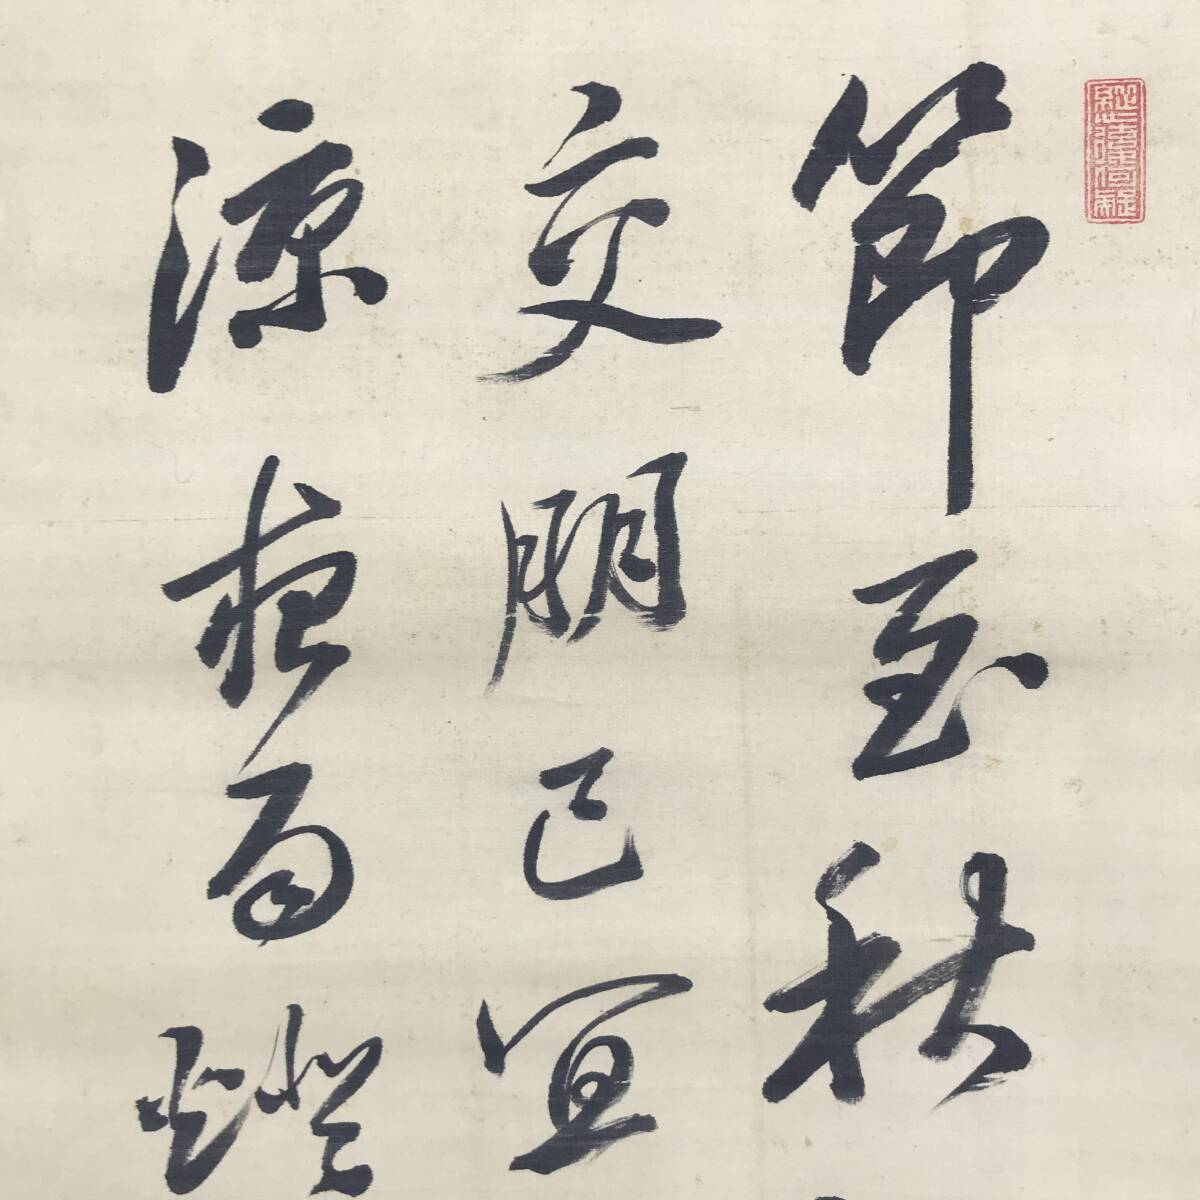 節至秋
交朋已宜
涼夜雨燈